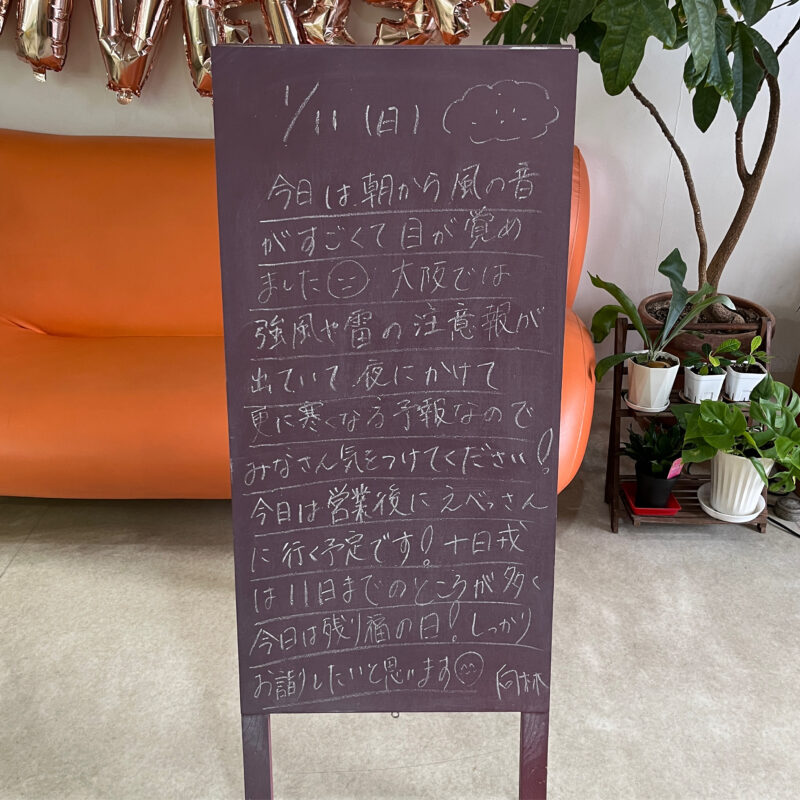 1/11(日)
今日は朝から風の音
がすごくて目が覚め
ました 大阪では
強風や雷の注意報が
出ていて夜にかけて
更に寒くなる予報なので
みなさん気をつけてください!
今日は営業後にえべっさん
に行く予定です!十日戎
は11日までのところが多く
今日は残り福の日!しっかり
お詣りしたいと思います 向林